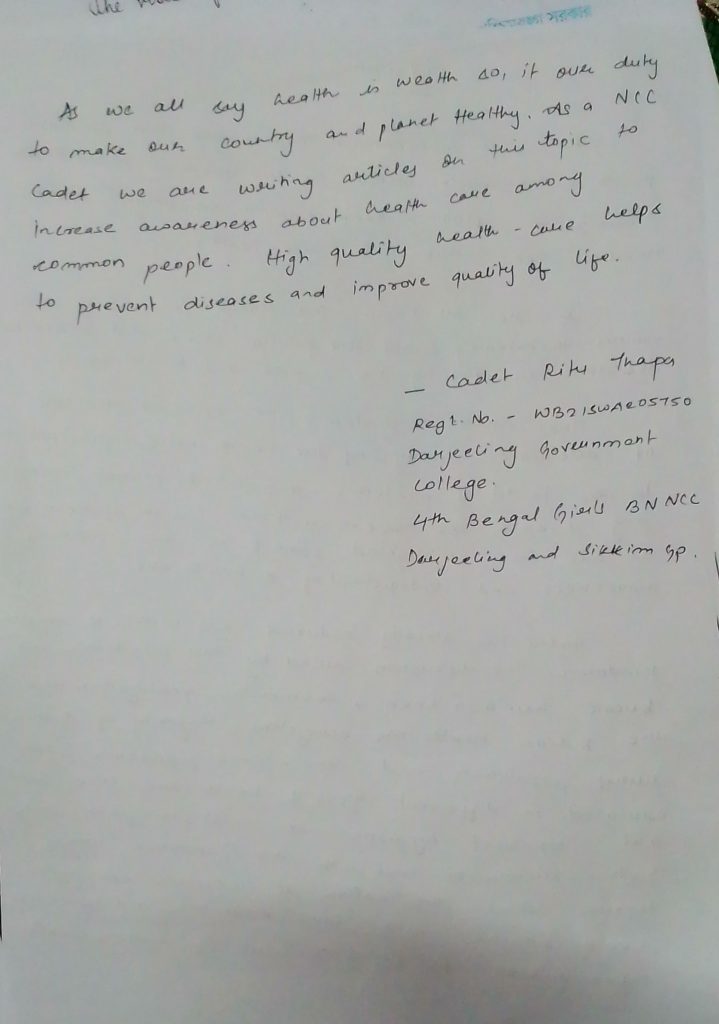 the
As we all say health is wealth so, it over duty
to make our country and planet Healthy. As a NCC
Cadet we are writing articles on this topic to
increase awareness about health care among
common people. High quality health-care helps
to prevent diseases and improve quality of life.
– Cadet Ritu Thapa
Regt. No. - WB21SWA205750
Darjeeling Government
College.
4th Bengal Girls BN NCC
Darjeeling and Sikkim Gp.